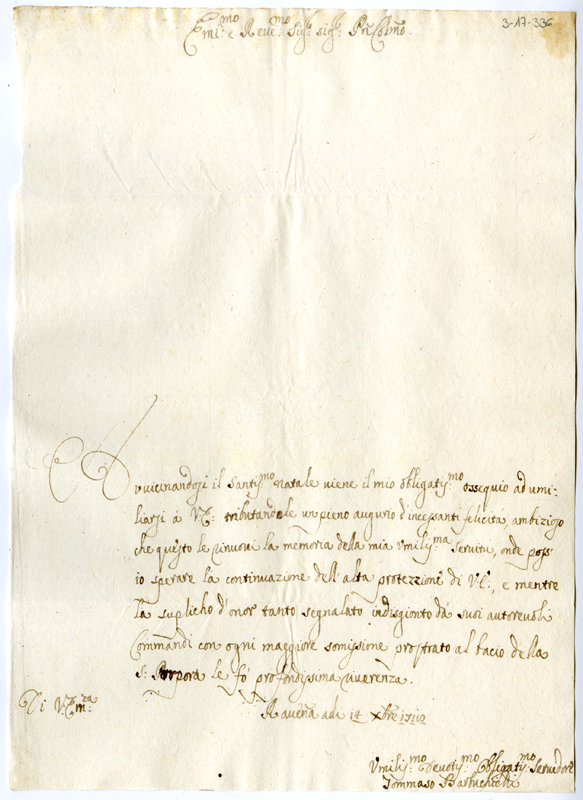 3-17-336
Em:mo e Reve:mo Sig:r sig:r Pñ Colmo.
Avvicinandosi il Santis:mo natale viene il mio obligatis:mo ossequio ad umi-
liarsi à V.E. tributandole un pieno augurio d'incessanti felicità, ambizioso
che questo le rinuovi la memoria della mia Umilis:ma servitù, onde poss'
io sperare la continuazione dell'alta protezzione di V.E., e mentre
la suplicho d'onor tanto segnalato indisgionto dà suoi autorevoli
Commandi con ogni maggiore somissione prostrato al bacio della
S: Porpora le fò profondissima riverenza.
Di V. Em:za
Ravena adi 14 Xbre
Umilis:mo Devotis:mo Obligatis:mo Servidore
Tommaso